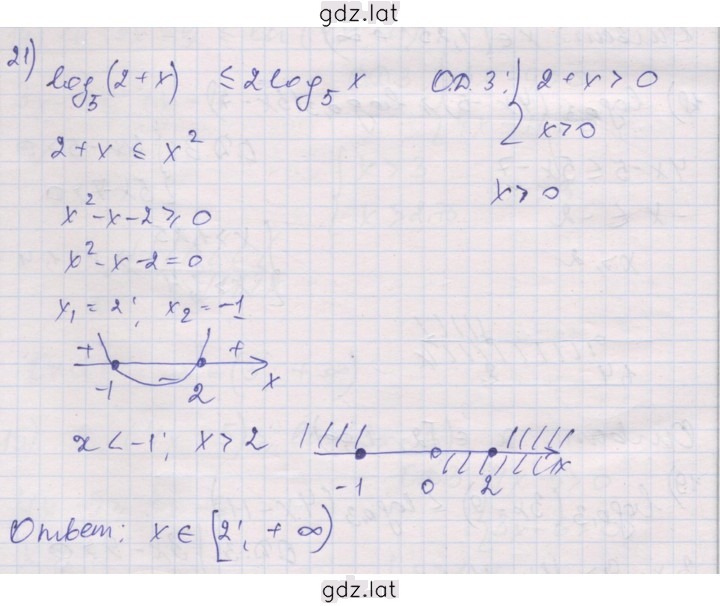 gdz.lat
21) log₅(2+x) ≤ 2log₅x О.Д.З: { 2+x>0
x>0
2+x ≤ x²
x>0
x²-x-2≥0
x²-x-2=0
x₁=2; x₂=-1
+ - +
-1 2 x
x<-1; x>2
-1 0 2 x
Ответ: x∈[2; +∞)
gdz.lat